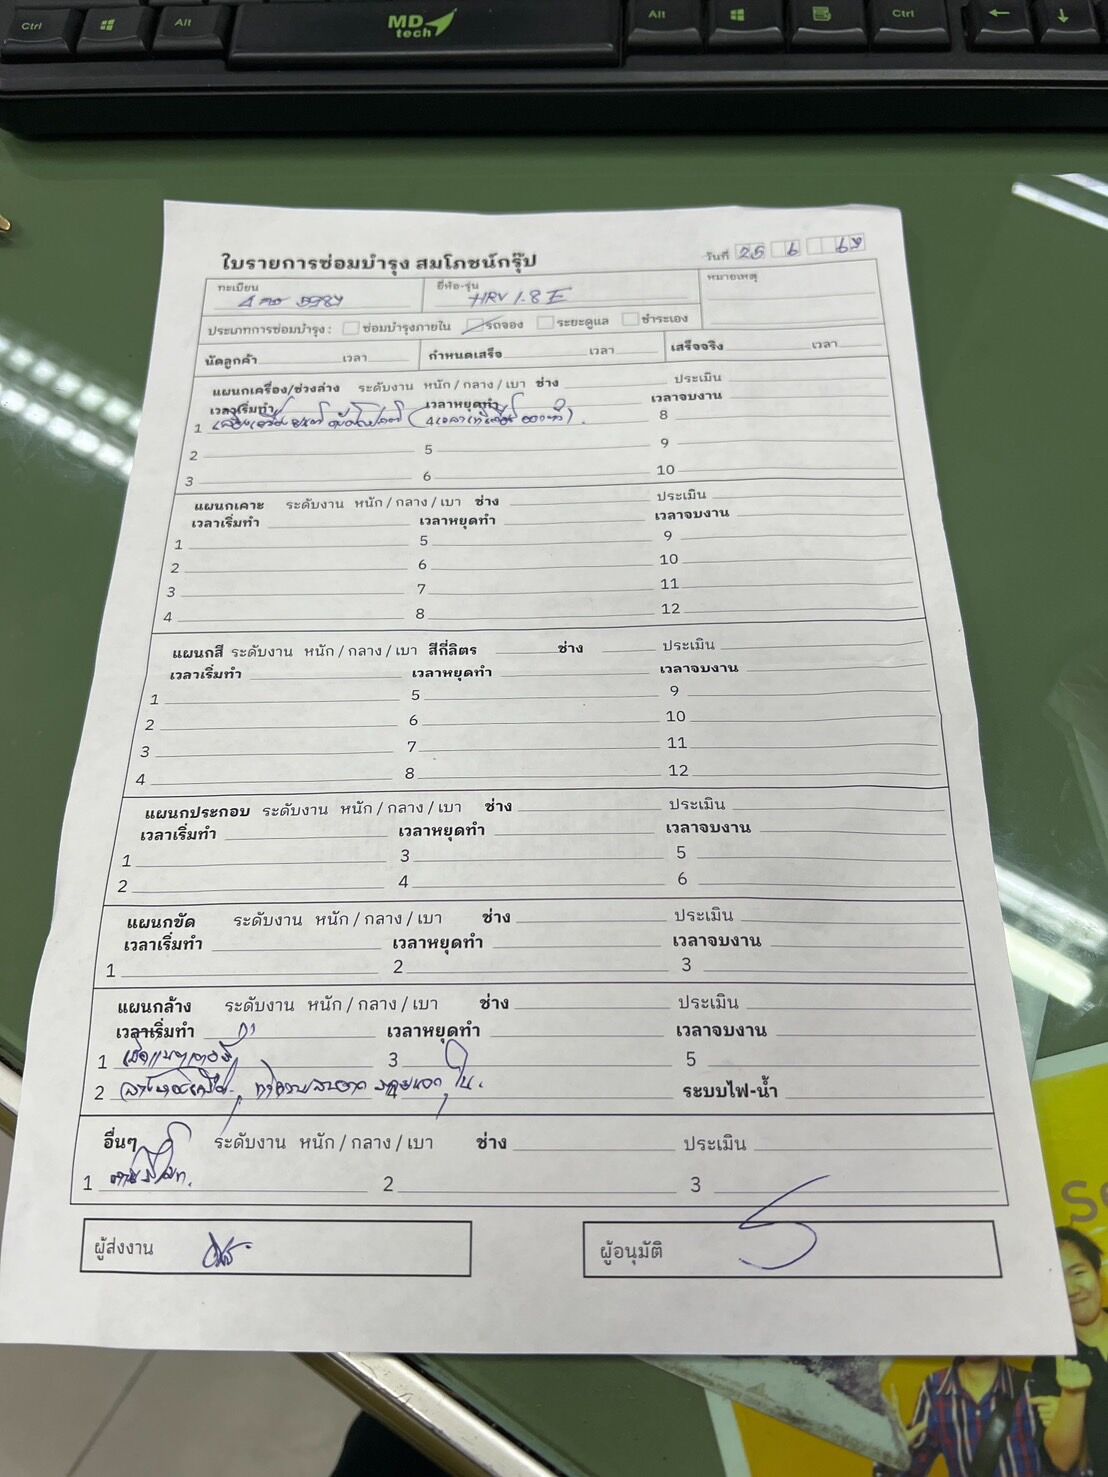 Ctrl Alt MD tech Alt Ctrl
ใบรายการซ่อมบำรุง สมโภชน์กรุ๊ป
วันที่ 25 6 69
ทะเบียน
ยี่ห้อ-รุ่น HRV 1.8 E
หมายเหตุ
ประเภทการซ่อมบำรุง : ซ่อมบำรุงภายใน รถจอง ระยะดูแล ชำระเอง
นัดลูกค้า เวลา กำหนดเสร็จ เวลา เสร็จจริง เวลา
แผนกเครื่อง/ช่วงล่าง ระดับงาน หนัก / กลาง / เบา ช่าง ประเมิน
เวลาเริ่มทำ เวลาหยุดทำ เวลาจบงาน
1 4 8
2 5 9
3 6 10
แผนกเคาะ ระดับงาน หนัก / กลาง / เบา ช่าง ประเมิน
เวลาเริ่มทำ เวลาหยุดทำ เวลาจบงาน
1 5 9
2 6 10
3 7 11
4 8 12
แผนกสี ระดับงาน หนัก / กลาง / เบา สีกี่ลิตร ช่าง ประเมิน
เวลาเริ่มทำ เวลาหยุดทำ เวลาจบงาน
1 5 9
2 6 10
3 7 11
4 8 12
แผนกประกอบ ระดับงาน หนัก / กลาง / เบา ช่าง ประเมิน
เวลาเริ่มทำ เวลาหยุดทำ เวลาจบงาน
1 3 5
2 4 6
แผนกขัด ระดับงาน หนัก / กลาง / เบา ช่าง ประเมิน
เวลาเริ่มทำ เวลาหยุดทำ เวลาจบงาน
1 2 3
แผนกล้าง ระดับงาน หนัก / กลาง / เบา ช่าง ประเมิน
เวลาเริ่มทำ เวลาหยุดทำ เวลาจบงาน
1 3 5
2 4 ระบบไฟ-น้ำ
อื่นๆ ระดับงาน หนัก / กลาง / เบา ช่าง ประเมิน
1 2 3
ผู้ส่งงาน
ผู้อนุมัติ